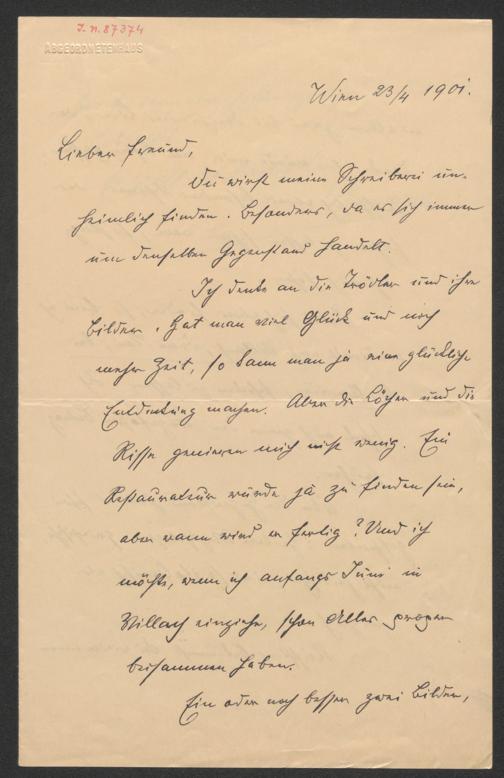 J.N. 87374
ABGEORDNETENHAUS
Wien 23/4 1901.
Lieber Freund,
Du wirst meine Schreiberei un-
heimlich finden. Besonders, da es sich immer
um denselben Gegenstand handelt.
Ich denke an die Trödler und ihre
Bilder. Hat man viel Glück und noch
mehr Zeit, so kann man ja eine glückliche
Entdeckung machen. Aber die Löcher und die
Risse genieren mich nicht wenig. Ein
Restaurateur würde ja zu finden sein,
aber wann wird er fertig? Und ich
möchte, wenn ich anfangs Juni in
Villach einziehe, schon Alles proper
beisammen haben.
Ein oder noch besser zwei Bilder,